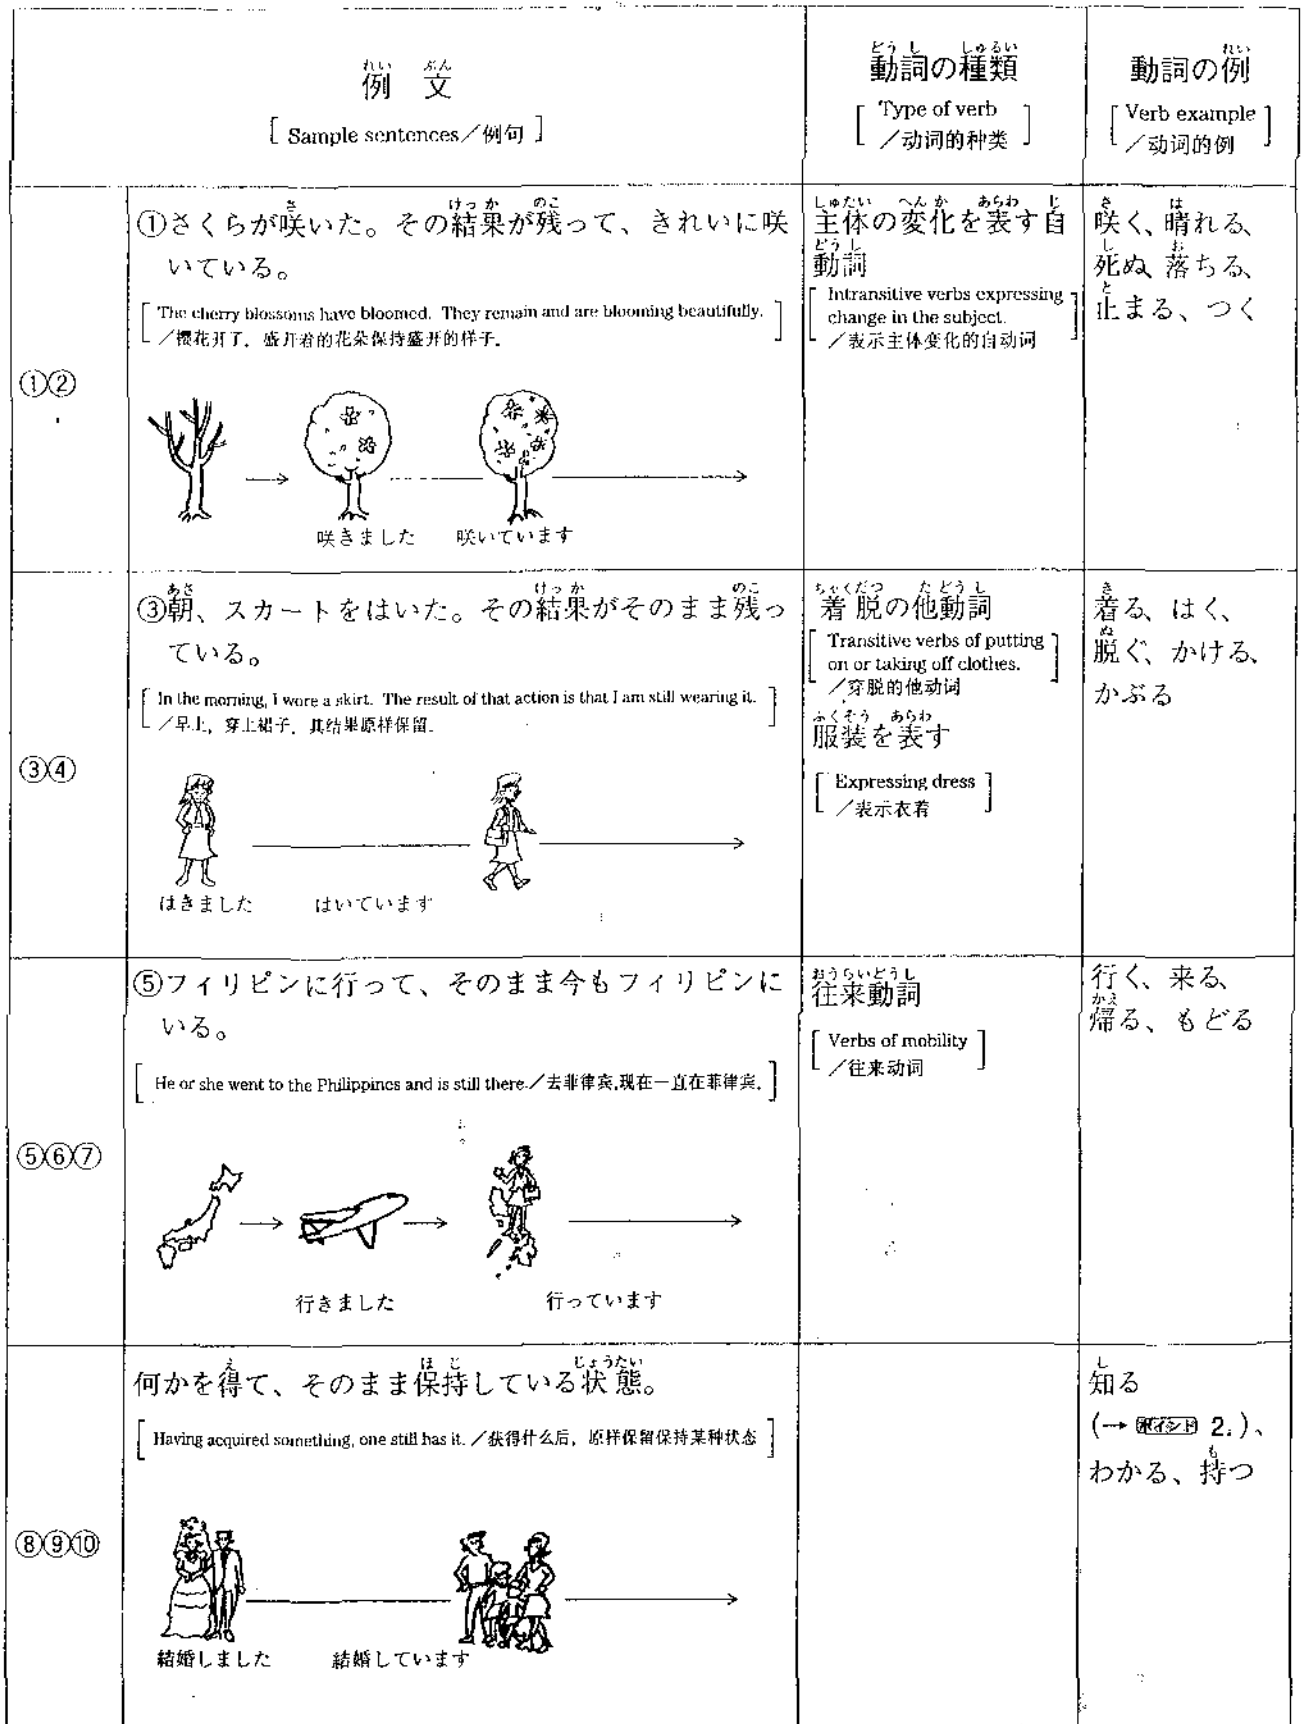 例文
[ Sample sentences／例句 ]
動詞の種類
[ Type of verb
／动词的种类 ]
動詞の例
[ Verb example
／动词的例 ]
①②
①さくらが咲いた。その結果が残って、きれいに咲
いている。
[ The cherry blossoms have bloomed. They remain and are blooming beautifully.
／樱花开了，盛开着的花朵保持盛开的样子。 ]
咲きました 咲いています
主体の変化を表す自
動詞
[ Intransitive verbs expressing
change in the subject.
／表示主体变化的自动词 ]
咲く、晴れる、
死ぬ、落ちる、
止まる、つく
③④
③朝、スカートをはいた。その結果がそのまま残っ
ている。
[ In the morning, I wore a skirt. The result of that action is that I am still wearing it.
／早上，穿上裙子，其结果原样保留。 ]
はきました はいています
着脱の他動詞
[ Transitive verbs of putting
on or taking off clothes.
／穿脱的他动词 ]
服装を表す
[ Expressing dress
／表示衣着 ]
着る、はく、
脱ぐ、かける、
かぶる
⑤⑥⑦
⑤フィリピンに行って、そのまま今もフィリピンに
いる。
[ He or she went to the Philippines and is still there.／去菲律宾,现在一直在菲律宾。 ]
行きました 行っています
往来動詞
[ Verbs of mobility
／往来动词 ]
行く、来る、
帰る、もどる
⑧⑨⑩
何かを得て、そのまま保持している状態。
[ Having acquired something, one still has it.／获得什么后，原样保留保持某种状态 ]
結婚しました 結婚しています
知る
(→ ポイント 2.)、
わかる、持つ